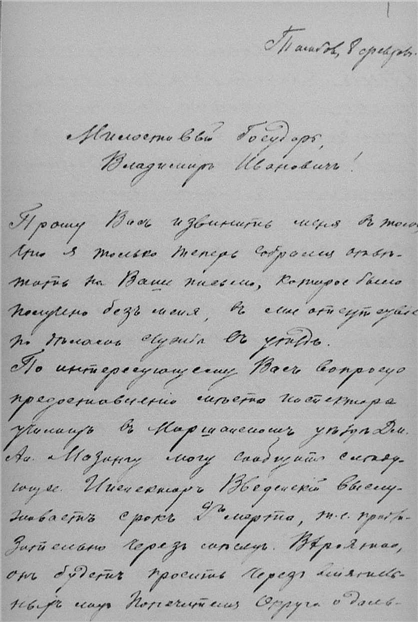 Тамбов, 8 феврал.
Милостивый Государь,
Владимиръ Ивановичъ!
Прошу Васъ извинить меня въ том,
что я только теперь собрался отвѣ-
чать на Ваше письмо, которое было
получено безъ меня, въ мое отсутствіе
по дѣламъ службы въ уѣздъ.
По интересующему Васъ вопросу
предоставленія мѣста инспектора
училищъ въ Моршанскомъ уѣздѣ Дм.
Ал. Мазингу могу сообщить слѣду-
ющее. Инспекторъ Введенскій выслу-
живаетъ срокъ марта, т.е. прибли-
зительно черезъ мѣсяцъ. Вѣроятно,
онъ будетъ просить черезъ вліятель-
ныхъ лицъ Попечителя Округа о даль-